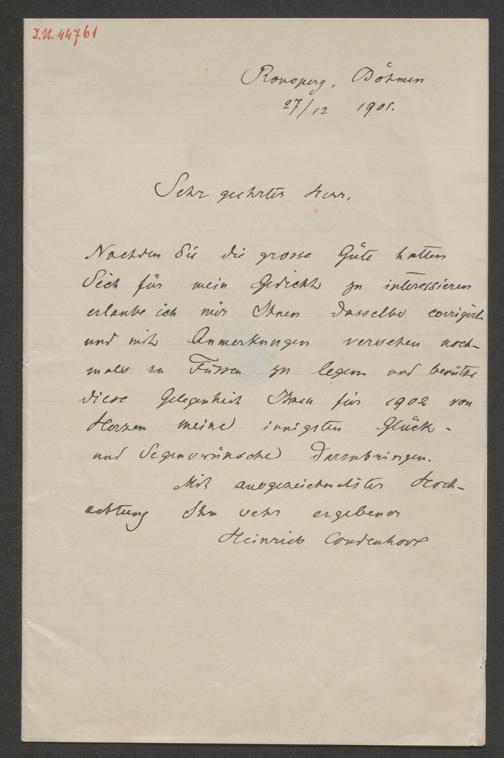 I.N. 44761
Ronsperg, Böhmen
27/12 1901.
Sehr geehrter Herr,
Nachdem Sie die grosse Güte hatten
Sich für mein Gedicht zu interessieren
erlaube ich mir Ihnen dasselbe corrigirt
und mit Anmerkungen versehen noch-
mals zu Füssen zu legen und benütze
diese Gelegenheit Ihnen für 1902 von
Herzen meine innigsten Glück-
und Segenswünsche darzubringen.
Mit ausgezeichnetster Hoch-
achtung Ihr sehr ergebener
Heinrich Coudenhove